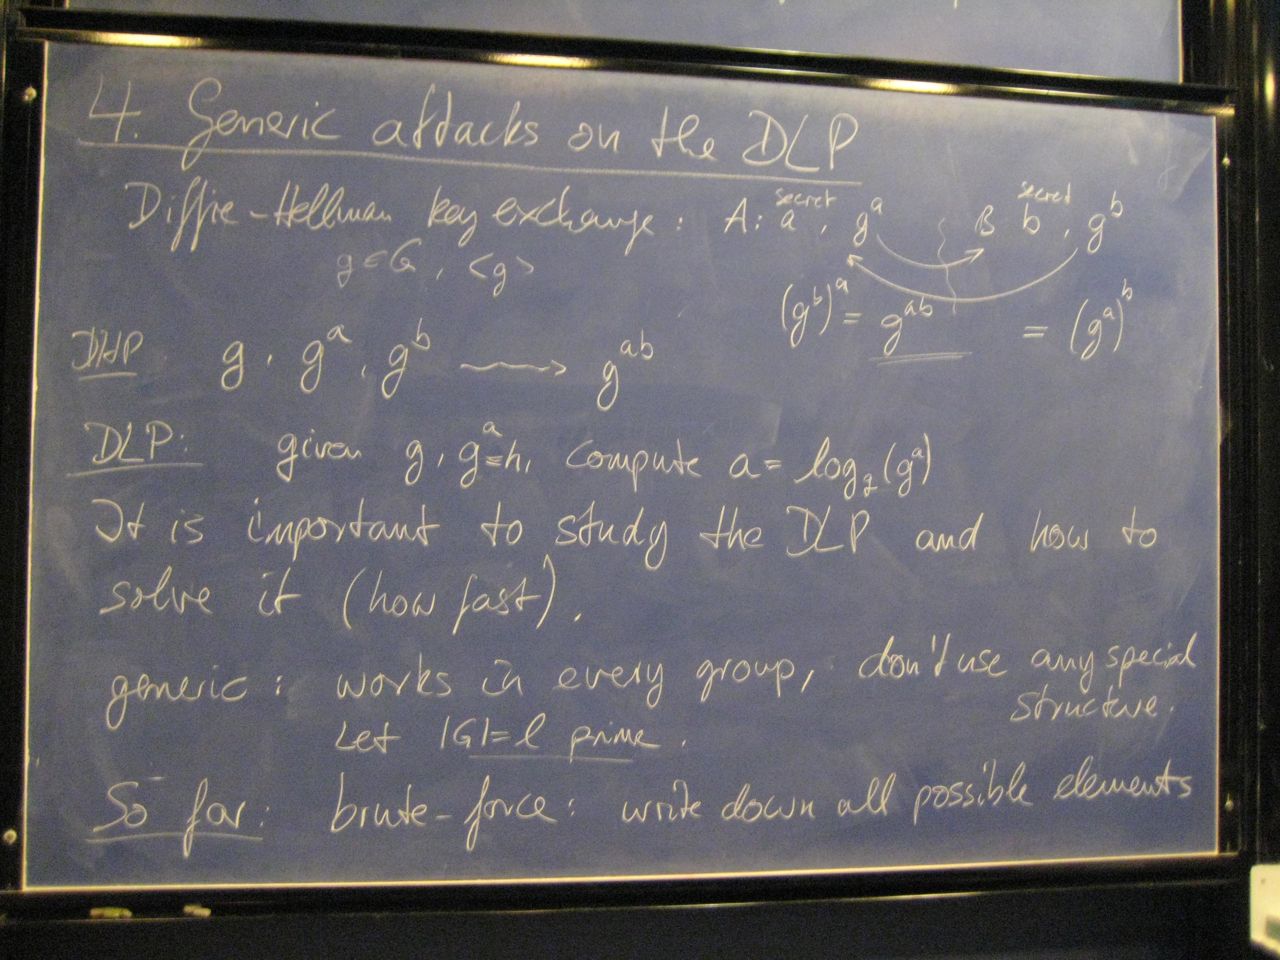 4. Generic attacks on the DLP
Diffie-Hellman key exchange: A: a secret, g^a B b secret, g^b
g∈G, <g>
(g^b)^a = g^ab = (g^a)^b
DHP g, g^a, g^b ⟶ g^ab
DLP: given g, g^a=h, compute a = log_g(g^a)
It is important to study the DLP and how to
solve it (how fast).
generic: works in every group, don't use any special
structure.
Let |G|=l prime.
So far: brute-force: write down all possible elements